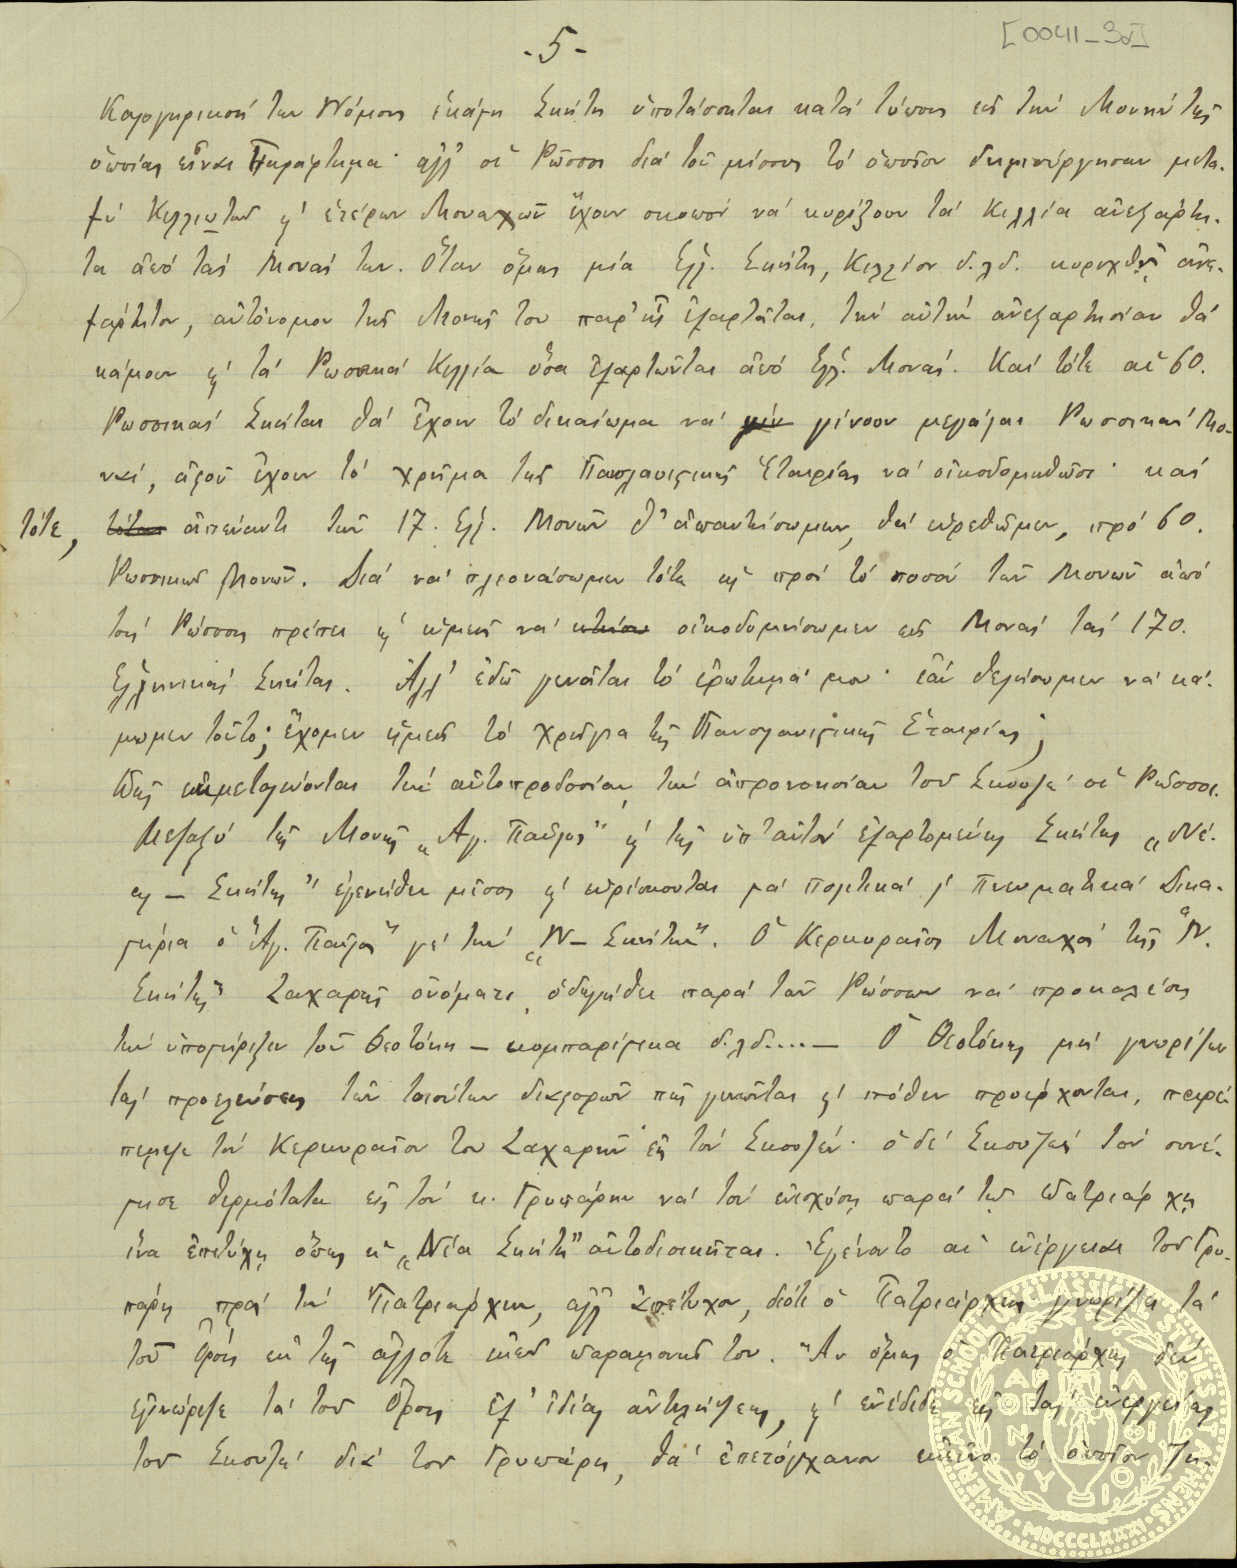 [0041_38]
-5-
Καλογηρικόν των Νόμον ἑκάστη Σκήτη ὑποτάσσεται κατὰ τύπους εἰς τὴν Μονὴν τῆς
ὁποίας εἶναι Παράρτημα· ἀλλ' οἱ Ρῶσσοι διὰ τοῦ μίσους τὸ ὁποῖον δημιούργησαν μετα-
ξὺ Κελλιωτῶν κ' ἑτέρων Μοναχῶν ἔχουν σκοπὸν νὰ κυρίξουν τὰ Κελλία ἀνεξάρτη-
τα ἀπὸ τὰς Μονάς των. Ὅταν ὅμως μία Ἑλλ. Σκήτη, Κελλίον κ.λ.π. κυρυχθῇ ἀνε-
ξάρτητον, αὐτόνομον τῆς Μονῆς του παρ' ἧς ἐξαρτᾶται, τὴν αὐτὴν ἀνεξαρτησίαν θὰ
κάμουν κ' τὰ Ρωσσικὰ Κελλία ὅσα ἐξαρτῶνται ἀπὸ Ἑλλ. Μονάς. Καὶ τότε αἱ 60.
Ρωσσικαὶ Σκῆται θὰ ἔχουν τὸ δικαίωμα νὰ γίνουν μεγάλαι Ρωσσικαὶ Μο-
ναί, ἀφοῦ ἔχουν τὸ χρῆμα τῆς Πανσλαυϊστικῆς Ἑταιρίας νὰ οἰκοδομηθῶσι· καὶ
τότε, ἀπέναντι τῶν 17. Ἑλλ. Μονῶν θ' ἀπαντήσωμεν, θὰ εὑρεθῶμεν, πρὸ 60.
Ρωσσικῶν Μονῶν. Διὰ νὰ πλεονάσωμεν τότε κ' πρὸς τὸ ποσὸν τῶν Μονῶν ἀπὸ
τοὺς Ρώσσους πρέπει κ' ἡμεῖς νὰ οἰκοδομήσωμεν εἰς Μονὰς τὰς 170.
Ἑλληνικὰς Σκήτας. Ἀλλ' ἐδῶ γεννᾶται τὸ ἐρώτημά μου· ἐὰν θελήσωμεν νὰ κά-
μωμεν τοῦτο; ἔχομεν ἡμεῖς τὸ χρῆμα τῆς Πανσλαυϊστικῆς Ἑταιρίας;
Πῶς ἐκμεταλεύονται τὴν αὐτοπροδοσίαν, τὴν ἀπρονοησίαν τοῦ Σκουζὲ οἱ Ρῶσσοι.
Μεταξὺ τῆς Μονῆς „Ἁγ. Παῦλος" κ' τῆς ὑπ' αὐτὸν ἐξαρτομένης Σκήτης „Νέ-
ας – Σκήτης" ἐγεννήθη μῖσος κ' εὑρίσκονται μὲ Πολιτικὰ κ' Πνευματικὰ Δικα-
στήρια ὁ „Ἁγ. Παῦλος" μὲ τὴν „Ν– Σκήτην". Ὁ Κερκυραῖος Μοναχὸς τῆς „Ν.
Σκήτης" Ζαχαρῆς ὀνόματι, ὁδηγήθη παρὰ τῶν Ρώσσων νὰ προκαλέσῃ
τὴν ὑποστήριξιν τοῦ Θεοτόκη – κομπαρίστικα κ.λ.π....– Ὁ Θεοτόκης μὴ γνωρίζων
τὰς προελεύσεις τῶν τοιούτων διαφορῶν πῶς γεννῶνται κ' πόθεν προέρχονται, παρέ-
πεμψε τὸν Κερκυραῖον τὸν Ζαχαρῆν εἰς τὸν Σκουζέν· ὁ δὲ Σκουζὲς τὸν συνέ-
στησε θερμότατα εἰς τὸν κ. Γρυπάρην νὰ τὸν ἐνισχύσῃ παρὰ τῷ Πατριάρχῃ
ἵνα ἐπιτύχῃ ὅπως ἡ „Νέα Σκήτη" αὐτοδιοικῆται. Ἐγένοντο αἱ ἐνέργειαι τοῦ Γρυ-
πάρη πρὸς τὸν Πατριάρχην, ἀλλ' ἀπέτυχον, διότι ὁ Πατριάρχης γνωρίζει τὰ
τοῦ Ὄρους ἐκ τῆς ἄλλοτε ἐκεῖ παραμονῆς του. Ἂν ὅμως ὁ Πατριάρχης δὲν
ἐγνώριζε τὰ τοῦ Ὄρους ἐξ ἰδίας ἀντιλήψεως, κ' ἐνέδιδε εἰς τὰς ἐνεργείας
τοῦ Σκουζὲ διὰ τοῦ Γρυπάρη, θὰ ἐπετύγχανον ἐκεῖνο τὸ ὁποῖον ζη-
AMERICAN SCHOOL OF CLASSICAL STUDIES AT ATHENS · MDCCCLXXXI